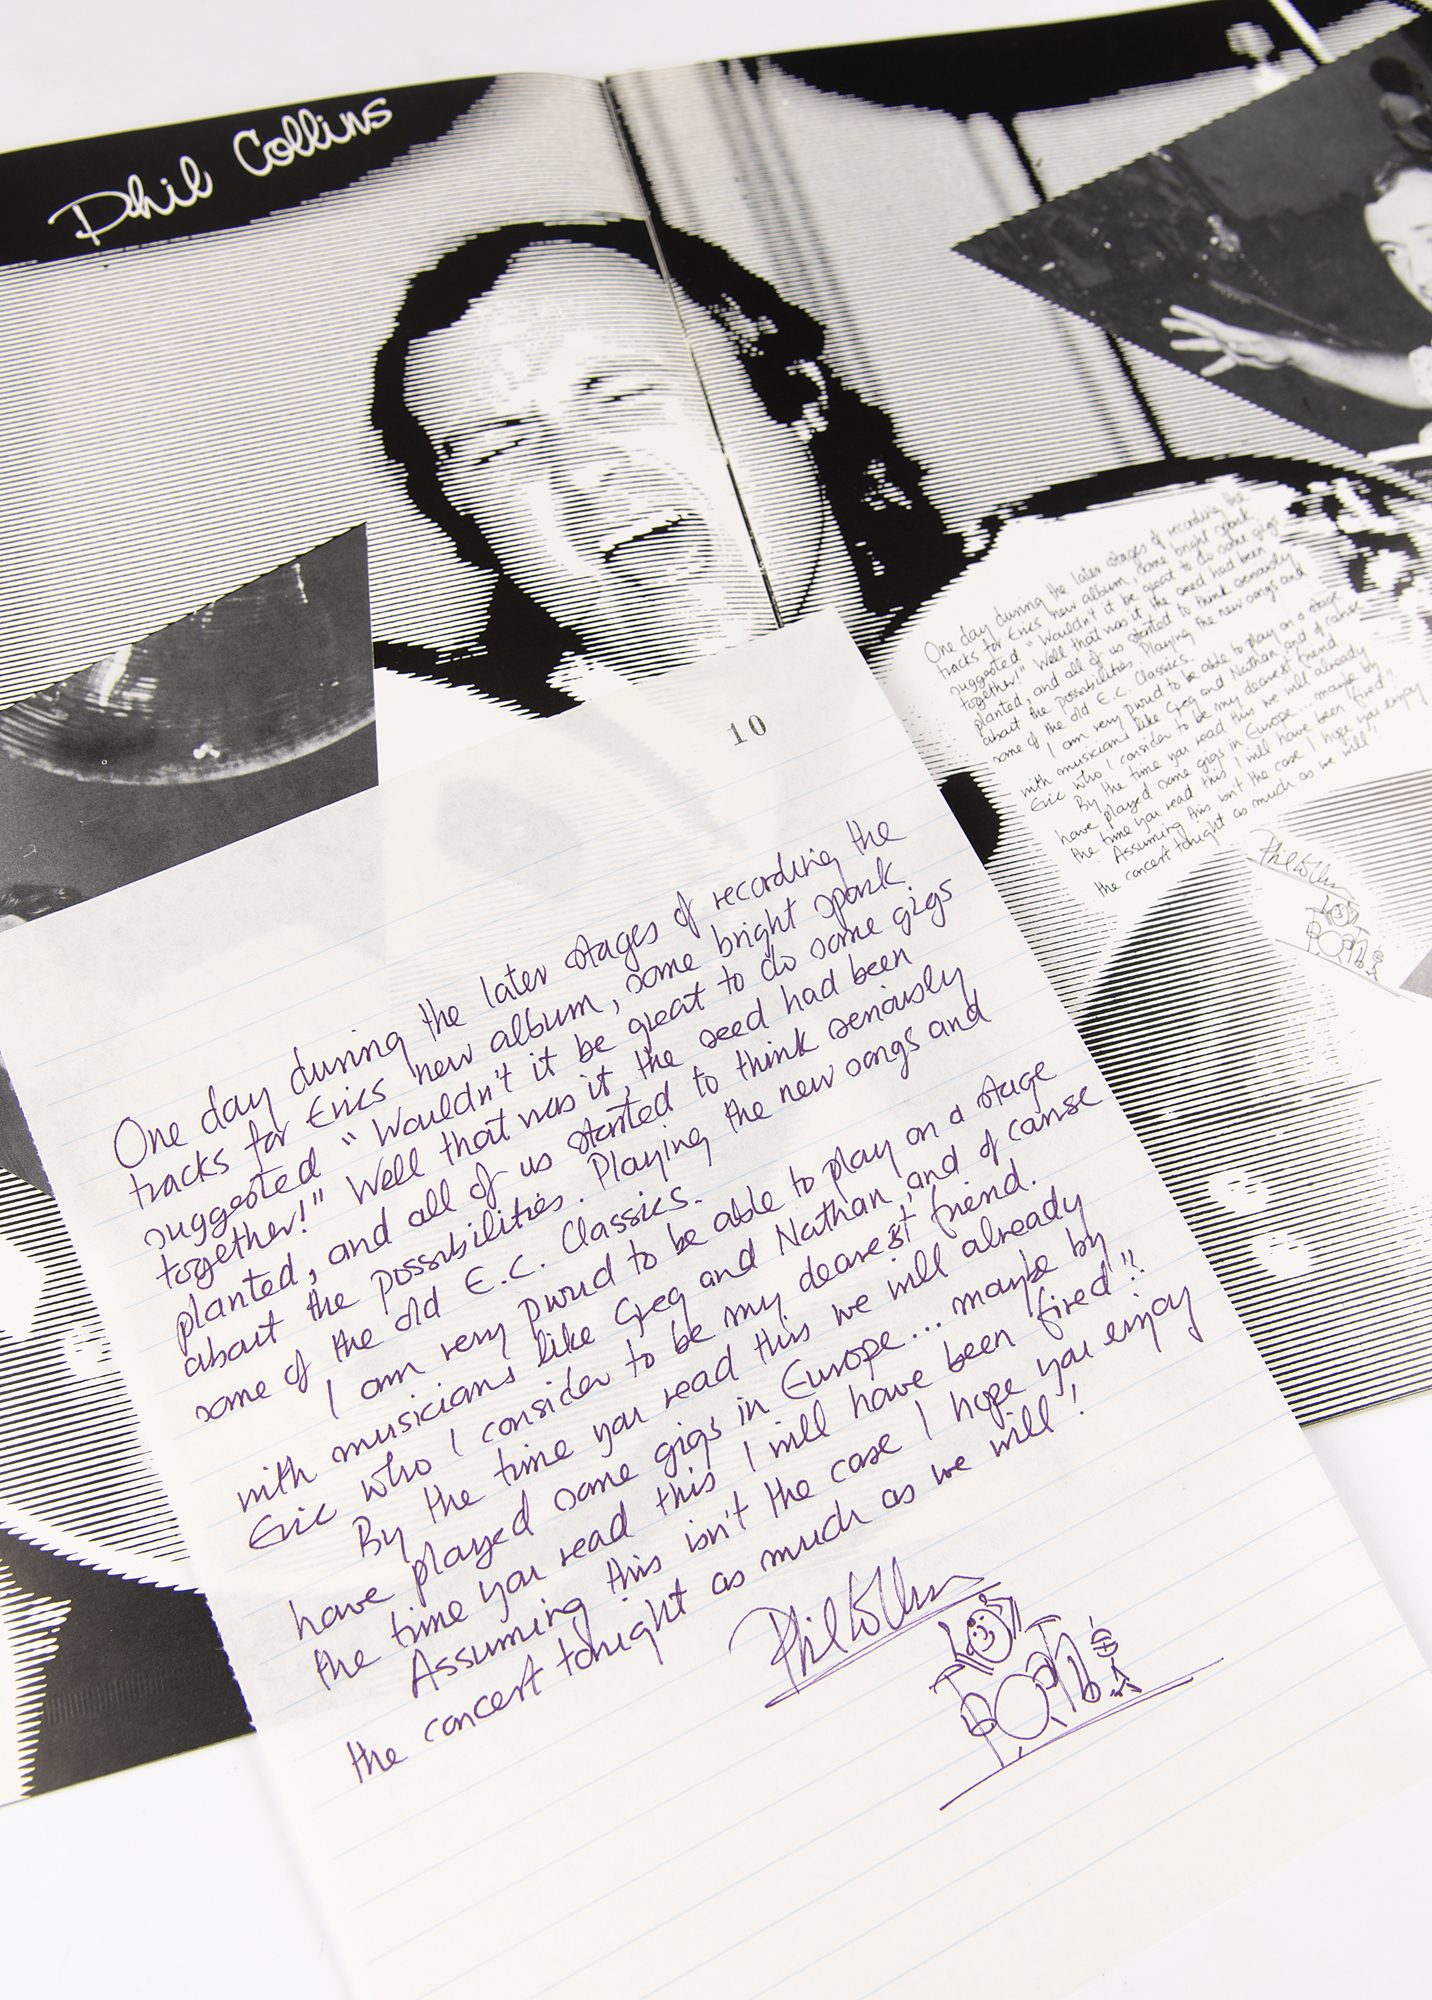 Phil Collins
10
One day during the later stages of recording the
tracks for Erics new album, some bright spark
suggested "Wouldn't it be great to do some gigs
together!" Well that was it, the seed had been
planted, and all of us started to think seriously
about the possibilities. Playing the new songs and
some of the old E.C. Classics.
I am very proud to be able to play on a stage
with musicians like Greg and Nathan, and of course
Eric who I consider to be my dearest friend.
By the time you read this we will already
have played some gigs in Europe... maybe by
the time you read this I will have been "fired"!
Assuming this isn't the case I hope you enjoy
the concert tonight as much as we will!
Phil Collins
One day during the later stages of recording the
tracks for Erics new album, some bright spark
suggested "Wouldn't it be great to do some gigs
together!" Well that was it, the seed had been
planted, and all of us started to think seriously
about the possibilities. Playing the new songs and
some of the old E.C. Classics.
I am very proud to be able to play on a stage
with musicians like Greg and Nathan, and of course
Eric who I consider to be my dearest friend.
By the time you read this we will already
have played some gigs in Europe... maybe by
the time you read this I will have been "fired"!
Assuming this isn't the case I hope you enjoy
the concert tonight as much as we will!
Phil Collins